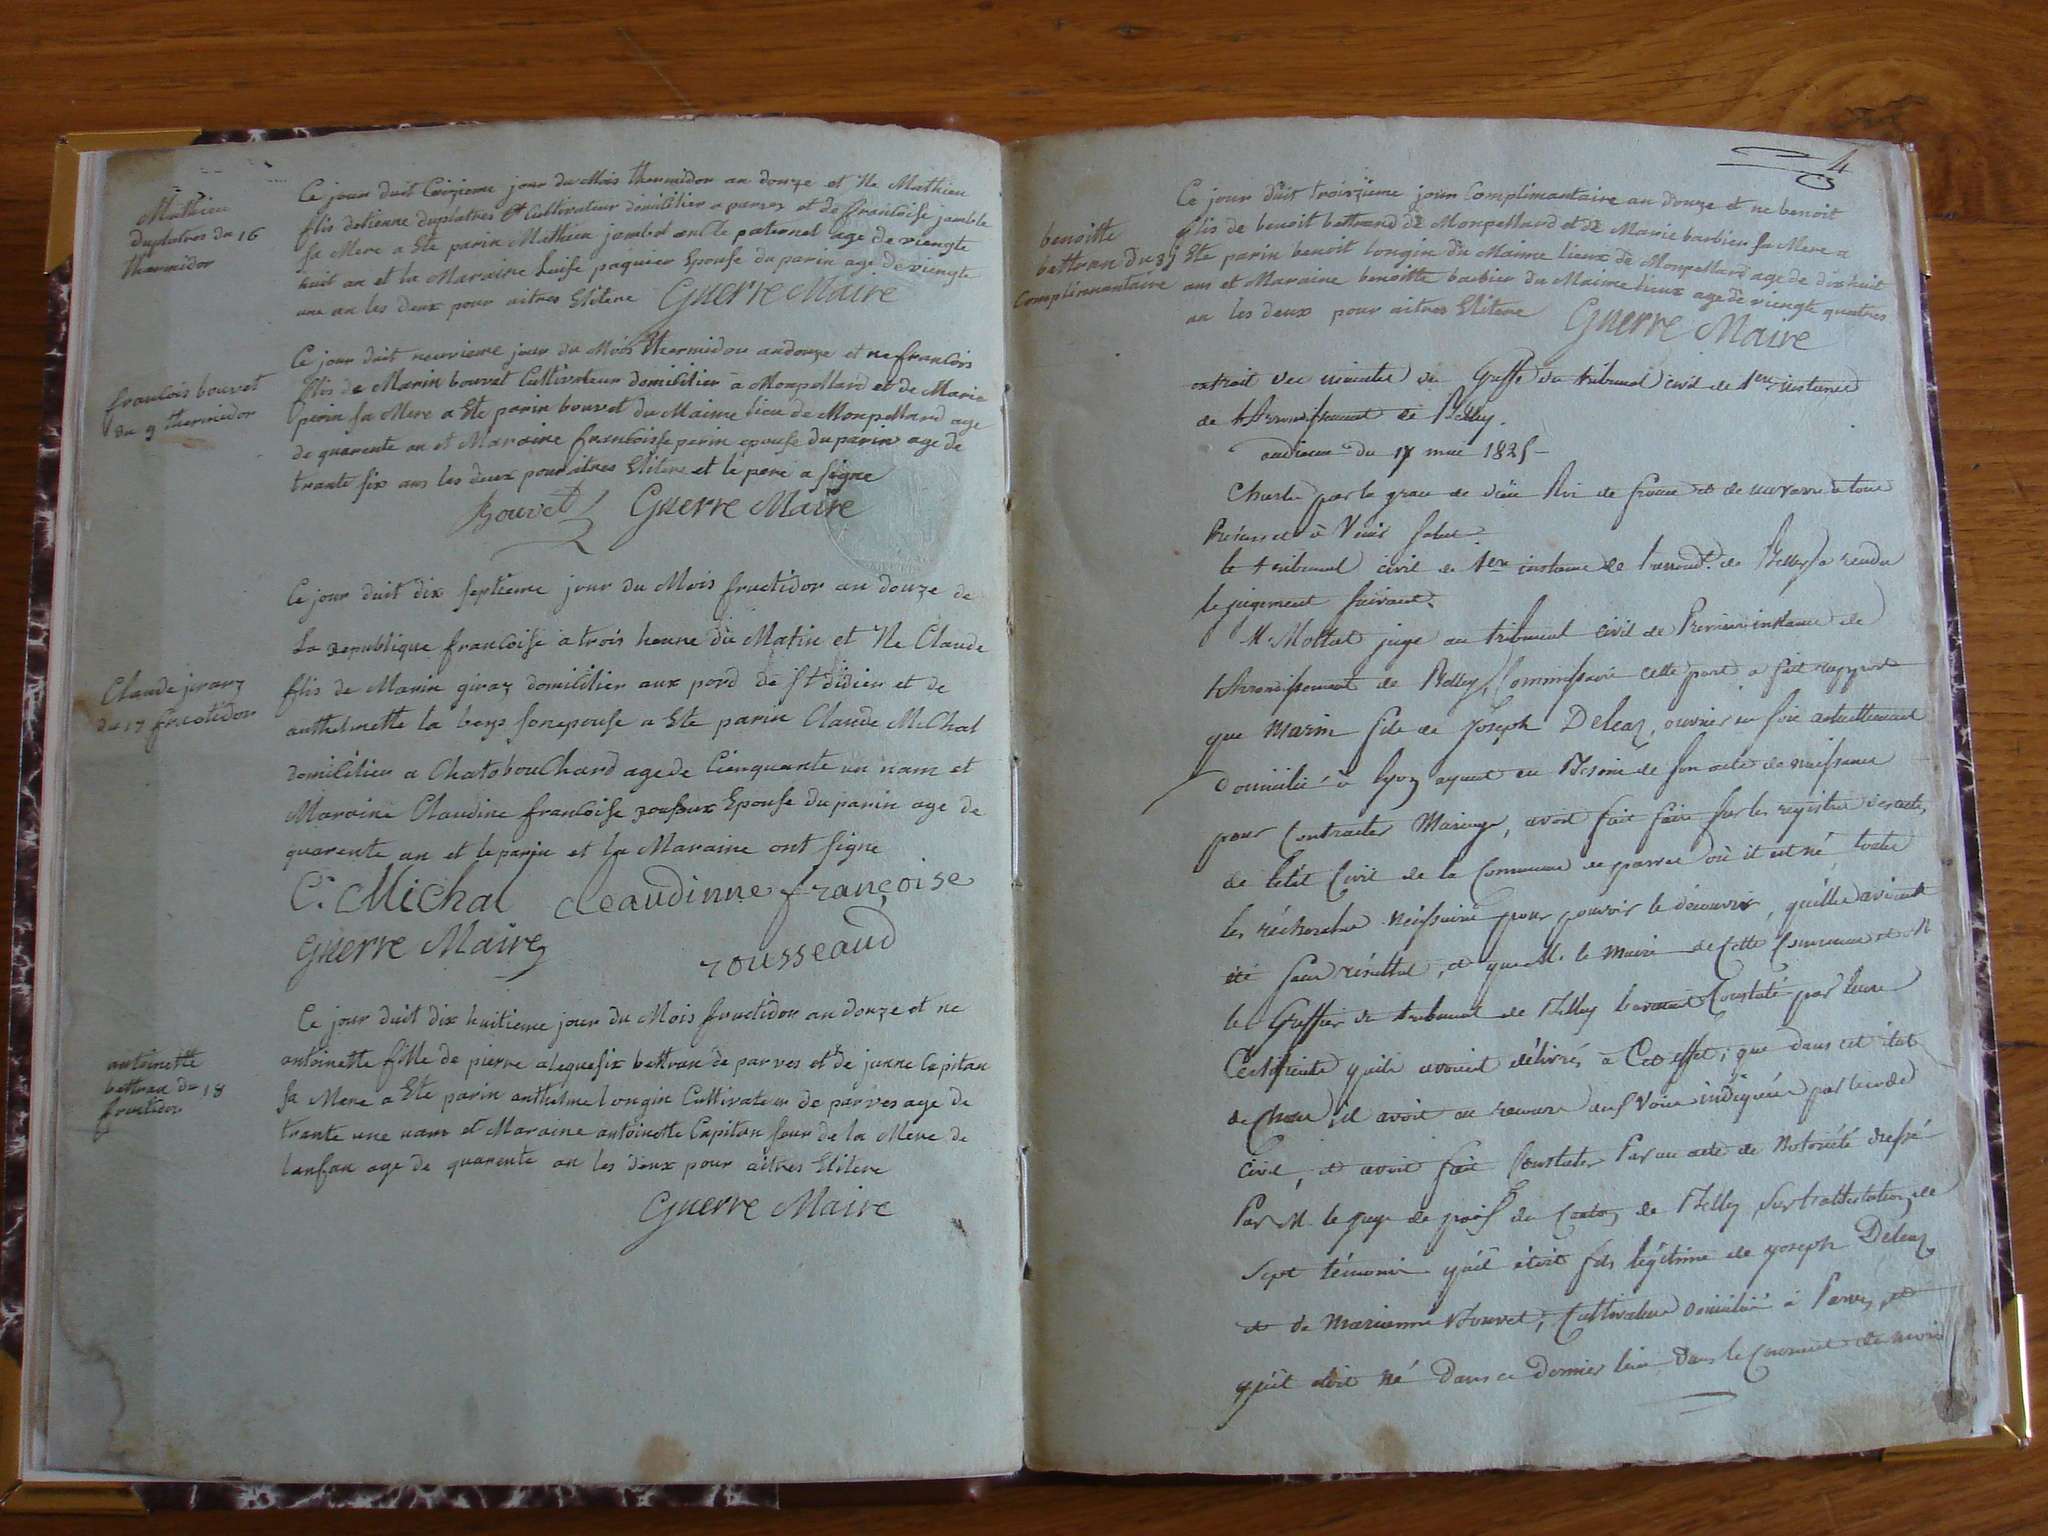 Mathieu
duplatres du 16
thermidor
Ce jour duit Ceizieme jour du Mois thermidor an douze et Ne Mathieu
flis detienne duplatres et Cultivateur domilitier a parvez et de francoise jamble
sa Mere a Ete parin Mathieu jambel oncle paternel age de viengte
huit an et la Maraine Luise paquier Epouse du parin age de viengte
une an les deux pour aitres Elitere Guerre Maire
francois bouvet
du 9 thermidor
Ce jour duit neuvieme jour du Mois thermidou an douze et ne francois
flis de Marin bouvet Cultivateur domilitier a Monpellard et de Marie
perin sa Mere a Ete parin bouvet du Maime Lieu de Monpellard age
de quarente an et Maraine francoisse perin epouse du parin age de
trante six ans les deux pour aitres Elitere et le pere a signe
Bouvet Guerre Maire
Claude jiraz
du 17 fructidor
Ce jour duit dix septieme jour du Mois fructidor an douze de
La republique francoise a trois heure du Matin et Ne Claude
flis de Marin giraz domilitier aux pord de st didier et de
anthelmette la beys son epouse a Ete parin Claude Michal
domilitier a Chatobouchard age de Cienquante un nam et
Maraine Claudine francoise rousux Epouse du parin age de
quarente an et le parin et la Maraine ont signe
C. Michal cleaudinne françoise
Guerre Maire rousseaud
antoinette
bettran du 18
fructidor
Ce jour duit dix huitieme jour du Mois fructidor an douze et ne
antoinette fille de pierre alequesix bettran de parves et de janne Capitan
sa Mere a Ete parin anthelme longin Cultivateur de parves age de
trante une nam et Maraine antoinette Capitan sour de la Mere de
lanfan age de quarente an les deux pour aitres Elitere
Guerre Maire
4
benoitte
bettran du 3
Complimantaire
Ce jour duit troizieme jour Complimantaire an douze et ne benoit
flis de benoit bettrand de Monpellard et de Marie barbier sa Mere a
Ete parin benoit longin du Maime Lieux de Monpellard age de dix huit
ans et Maraine benoitte barbier du Maime lieux age de viengte quatres
an les deux pour aitres Elitere Guerre Maire
extrait des minutes du Greffe du tribunal civil de 1ere instance
de l'Arrondissement de Belley.
audience du 17 mai 1825
Charles par la grace de dieu Roi de france et de navarre a tous
Présens et à Venir salut.
le tribunal civil de 1ere instance de l'arrond.t de Belley a rendu
le jugement suivant.
M. Mottet juge au tribunal civil de Premiere instance de
l'Arrondissement de Belley, Commissaire cette part a fait rapport
que Marin fils de Joseph Deleaz, ouvrier en soie actuellement
domicilié à lyon ayant eu Besoin de son acte de naissance
pour Contracter Mariage, avoit fait faire sur les registres des actes
de l'état Civil de la Commune de parves où il est né, toutes
les récherches nécessaires pour pouvoir le découvrir, qu'elles avoient
été sans résultat, et que M. le Maire de cette Commune et M
le Greffier du tribunal de Belley l'avoient Constaté par leurs
Certificats qu'ils avoient délivrés à Cet effet; que dans cet état
de Choses, il avoit eu recours aux Voies indiquées par le code
civil, et avoit fait Constater Par un acte de Notoriété dressé
Par M. le juge de paix du Canton de Belley sur l'attestation de
Sept témoins qu'il étoit fils légitime de Joseph Deleaz
et de Marianne Bouvet, Cultivateurs domiciliés à Parves, et
qu'il étoit né Dans ce Dernier lieu Dans le Courant de mois